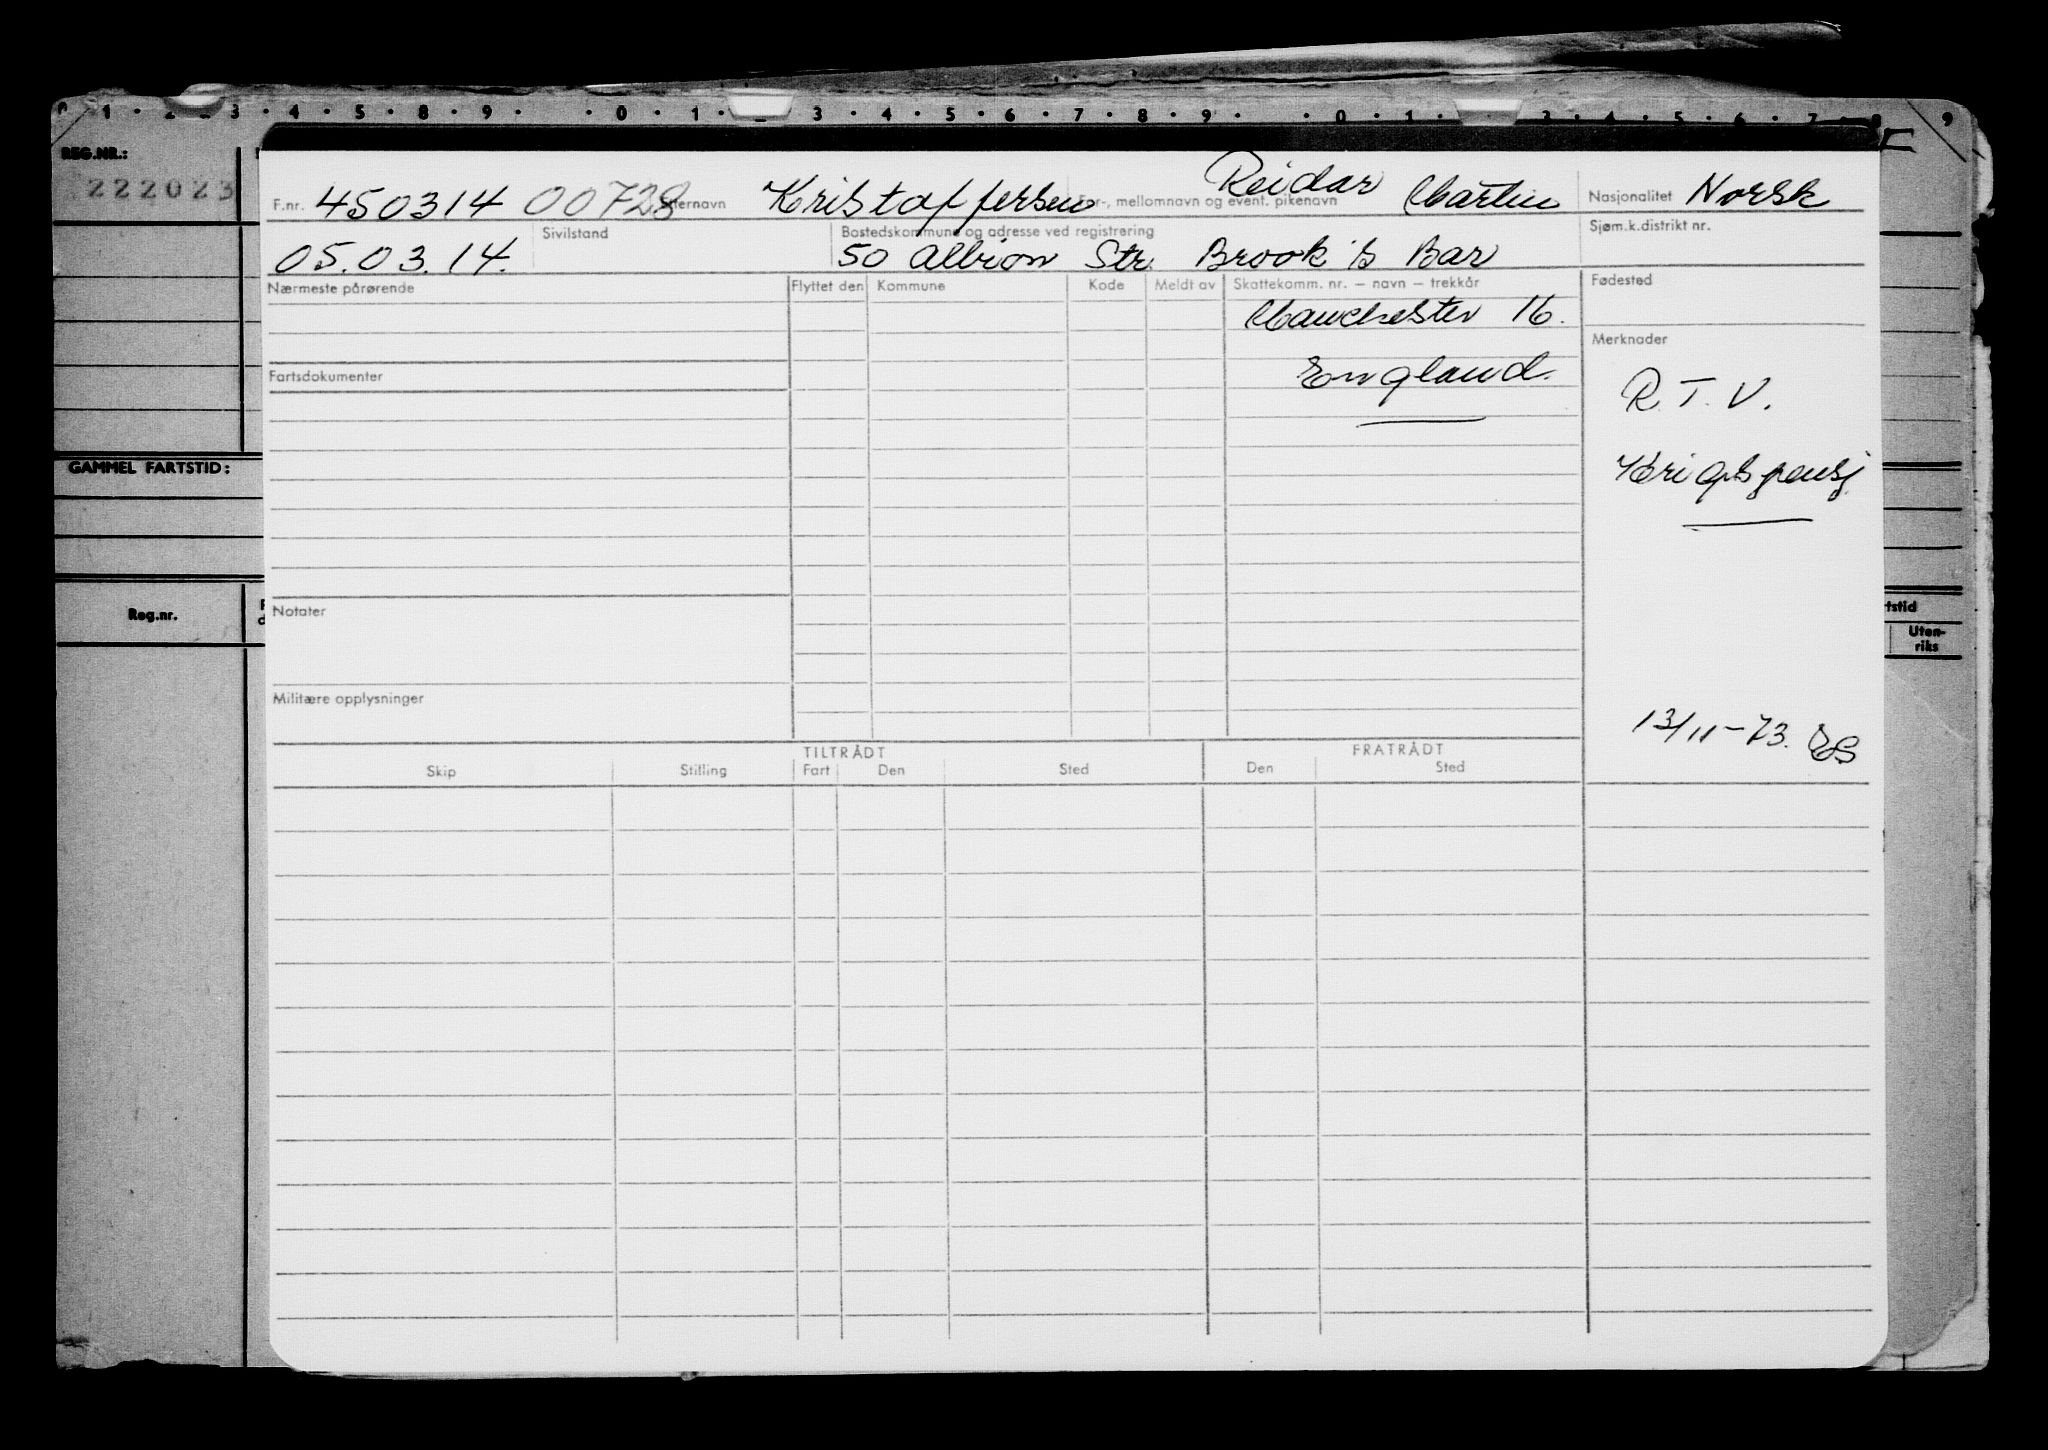 0 1 · 2 3 · 4 · 5 · 8 · 9 · · 0 · 1 · 3 · 4 · 5 · 6 · 7 · 8 · 9 · · 0 · 1 · 3 · 4 · 5 · 6 · 7 · 8 9
REG.NR.:
222023
F.nr. 450314 00728 Etternavn Kristoffersen For-, mellomnavn og event. pikenavn Reidar Martin Nasjonalitet Norsk
05.03.14. Sivilstand Bostedskommune og adresse ved registrering 50 Albion Str. Brook's Bar Sjøm.k.distrikt nr.
Nærmeste pårørende Flyttet den Kommune Kode Meldt av Skattekomm. nr. – navn – trekkår Fødested
Manchester 16.
England.
Merknader
Fartsdokumenter
R.T.V.
Krigspensj.
GAMMEL FARTSTID:
Reg.nr.
Notater
rtstid
Uten-
riks
Militære opplysninger
13/11-73. ES
TILTRÅDT FRATRÅDT
Skip Stilling Fart Den Sted Den Sted